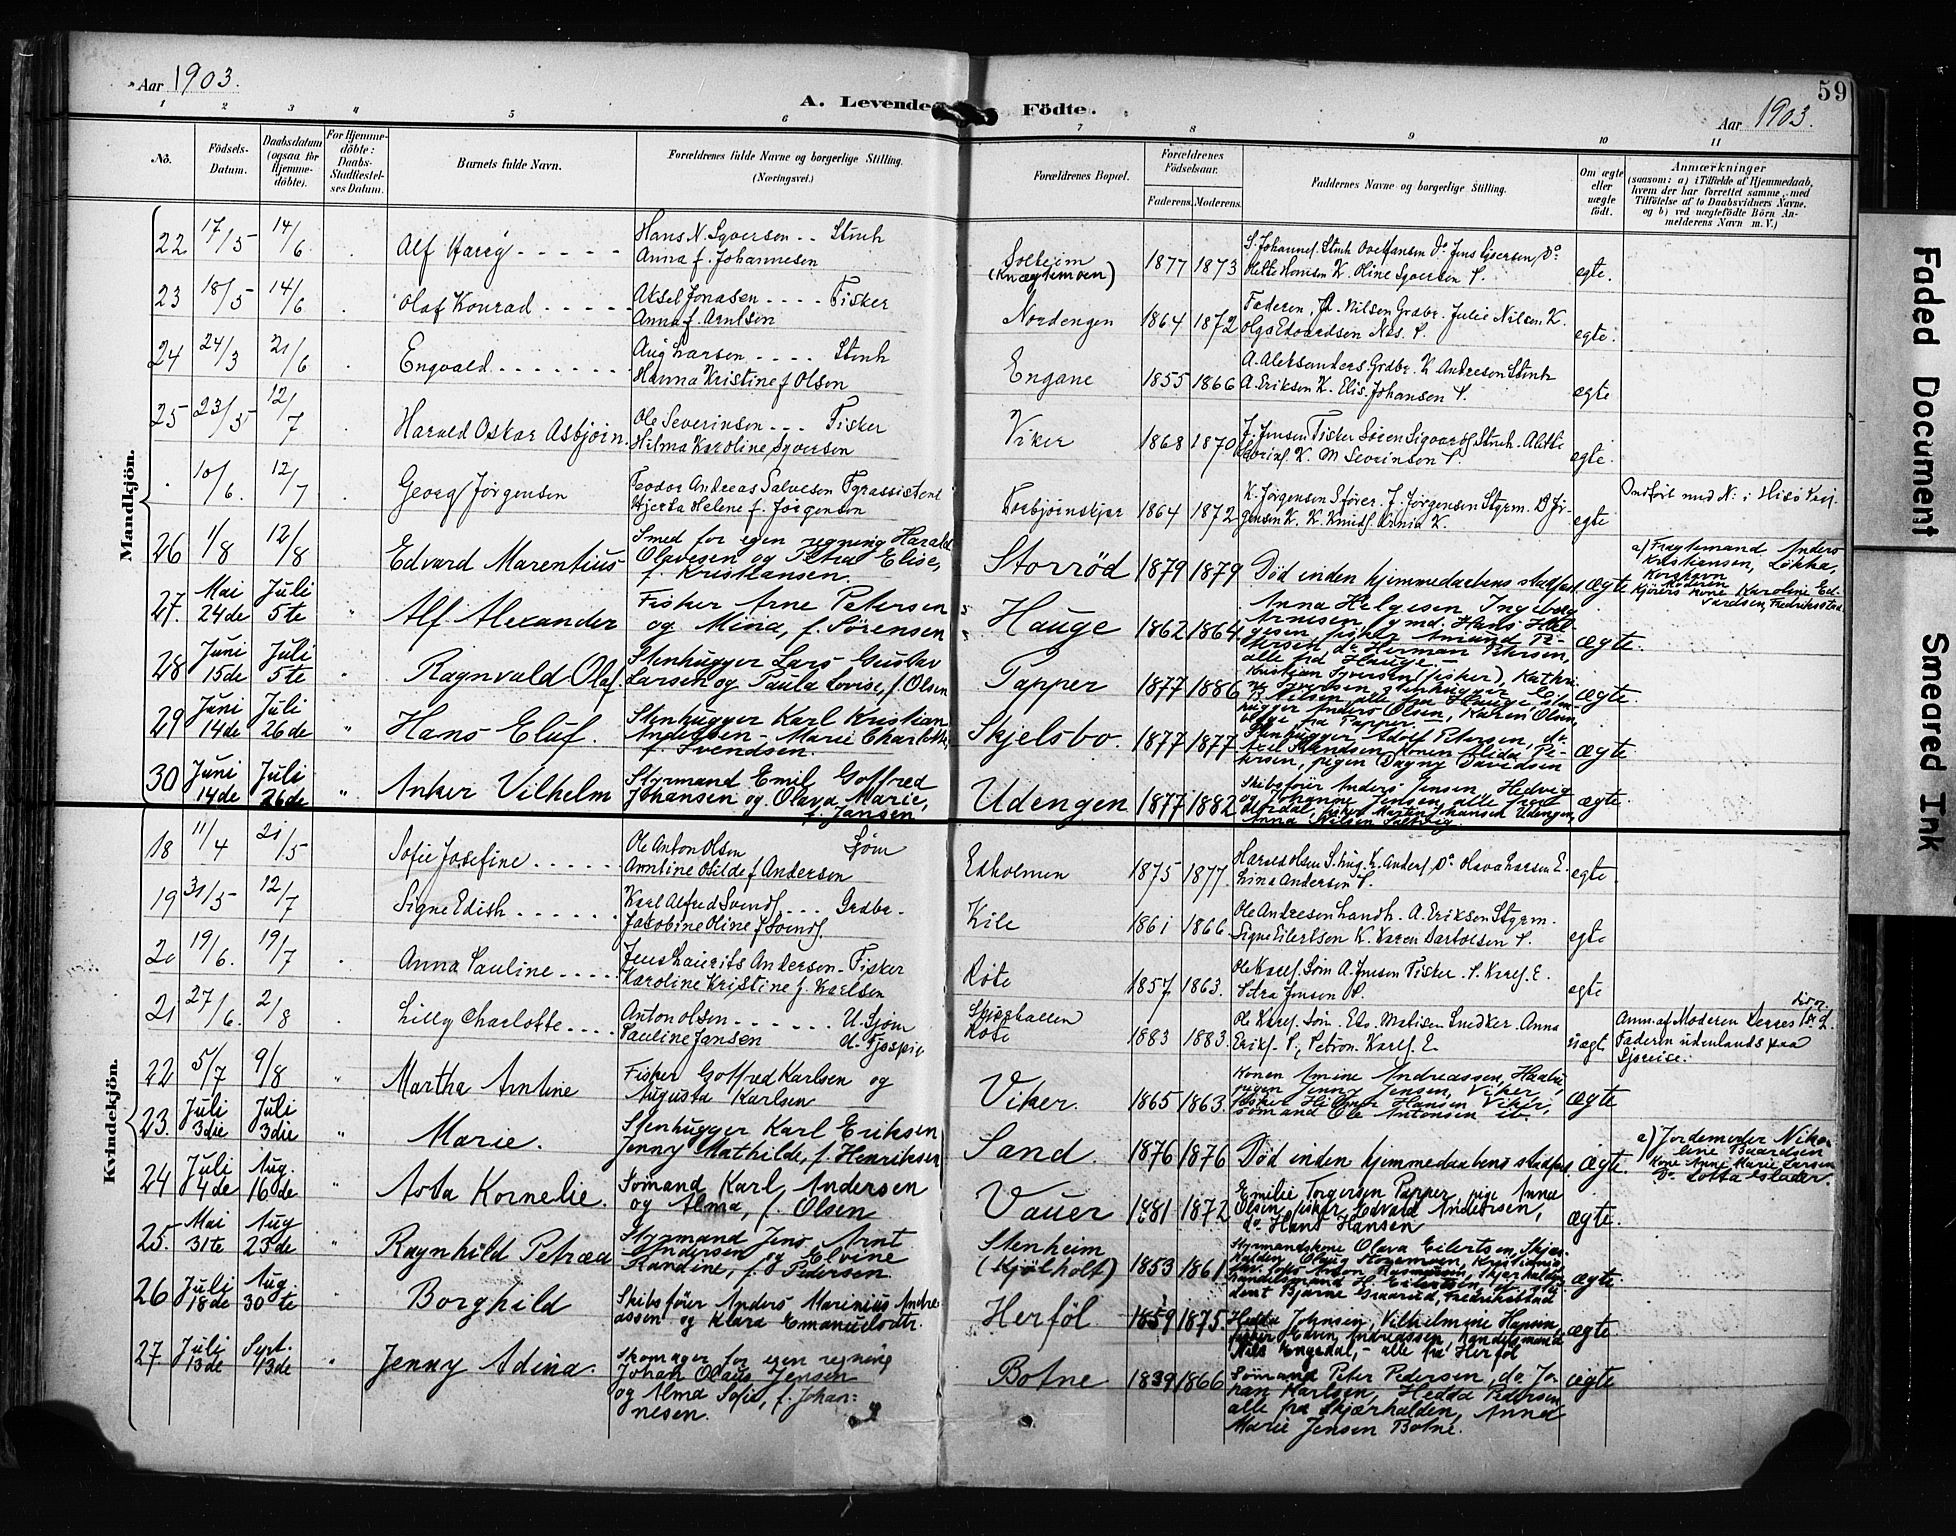 Aar 1903.
A. Levende Födte.
59
Aar 1903.
1 2 3 4 5 6 7 8 9 10 11
No.
Födsels-Datum.
Daabsdatum (ogsaa for Hjemmedöbte).
For Hjemmedöbte: Daabs-Stadfæstelses Datum.
Barnets fulde Navn.
Forældrenes fulde Navne og borgerlige Stilling.
(Næringsvei.)
Forældrenes Bopæl.
Forældrenes Födselsaar.
Faderens. Moderens.
Faddernes Navne og borgerlige Stilling.
Om ægte eller uægte født.
Anmærkninger
(saasom: a) i Tilfælde af Hjemmedaab, hvem der har forrettet samme, med Tilföielse af to Daabsvidners Navne. og b) ved uægtefödte Börn Anmelderens Navn m. V.)
Mandkjön.
22 17/5 14/6 Alf Harry Hans N. Syversen Stenh
Anna f. Johannesen
Solheim 1877 1873 egte.
23 18/5 14/6 Olaf Konrad Aksel Jonasen Fisker
Anna f. Arntsen
Nordengen 1864 1872 Faderen, Nilsen Grdbr. Julie Nilsen K.
egte.
24 24/3 21/6 Engvald Aug Larsen Stenh
Hanna Kristine f Olsen
Engane 1855 1866 A. Aleksanders Grdbr. K Andresen Stenh
A. Eriksen K. Elis. Johansen P. egte
25 23/5 12/7 Harald Oskar Asbjørn. Ole Severinsen Fisker
Hilma Karoline Syversen
Viker 1868 1870 J. Jensen Fisker Stenh. Alette
K. M Severinsen P. egte.
10/6. 12/7 Georg Jørgensen Teodor Andreas Salvesen Fyrassistent
Hjerta Helene f. Jørgensen
Torbjørnskjær 1864 1872 K. Jørgensen J. Jørgensen Styrm.
egte
26 1/8 12/8 Edvard Marentius Smed for egen regning Harald
Olavesen og Petra Elise,
f. Kristiansen.
Storröd 1879 1879 Död inden hjemmedaabens stadfæst. Ægte
a) Fragtemand Anders
Kristiansen, Løkka,
Korshavn
Kjörers kone Karoline Ed-
vardsen, Fredriksstad
27. Mai 24de Juli 5te Alf Alexander Fisker Arne Petersen
og Mina, f. Sörensen
Hauge 1862 1864 Anna Helgesen, Ingeborg
Arnesen, gmd. Hans Hel-
gesen, fisker Amund Pe-
tersen, do Herman Petersen,
alle fra Hauge.- ægte.
28 Juni 15de Juli 5te Ragnvald Olaf. Stenhugger Lars Gustav
Larsen og Paula Lovise, f. Olsen
Papper 1877 1886 Kristian Syversen (fisker), Kathri-
ne Syversen, stenhugger
Nilsen, alle fra Hauge, sten-
hugger Anders Olsen, Karen Olsen,
begge fra Papper.- ægte
29 Juni 14de Juli 26de Hans Eluf. Stenhugger Karl Kristian
Andersen - Marie Charlotte,
f. Svendsen.
Skjelsbo. 1877 1877 Stenhugger Adolf Petersen, do
Axel Konen Alida Pe-
tersen, pigen Dagny Davidsen ægte
30 Juni 14de Juli 26de Anker Vilhelm Styrmand Emil Gotfred
Johansen og Olava Marie,
f. Jansen
Udengen 1877 1882 Skibsförer Anders Jensen, Hedvig
og Johanne Jensen, alle fra
Udengen,
Anna Nilsen ægte
Kvindekjön.
18 11/4 21/5 Sofie Josefine Ole Anton Olsen Sjøm
Arntine Otilde f Andersen
Edholmen 1875 1877. Harald Olsen S.hug. K. Anders. Do Olava Larsen E.
Lina Andersen P. egte.
19 31/5 12/7 Signe Edith Karl Alfred Svends. Grdbr.
Jakobine Oline f Svends.
Kile 1861 1866. Ole Andresen Landh. A. Eriksen Styrm.
Signe Eilertsen K. Karen Bartolsen P. egte
20 19/6. 19/7 Anna Pauline Jens Laurits Andersen Fisker
Karoline Kristine f. Karlsen
Røte 1857 1863. Ole Karls. Søm A. Jensen Fisker. P. Karls. E.
Petra Jensen P. egte
21 27/6. 2/8 Lilly Charlotte Anton Olsen U. Sjøm
Pauline Jansen U. Tjpspig
Skjærhallen
Røte 1883 1883. Ole Karls. Søm. Ed. Matisen Snedker. Anna
Eriks. P., Petron. Karls. E. uægt
Anm. af Moderen
Faderen udenlands paa
Sjøreise.
22 5/7 9/8 Martha Arntine Fisker Gotfred Karlsen og
Augusta Karlsen
Viker. 1865 1863. Konen Amine Andreassen,
pigen Jenny Jensen, Viker,
fisker Hilmar Hansen Viker,
sömand Ole Antonsen ib. ægte
23. Juli 3die Juli 3die Marie. Stenhugger Karl Eriksen
Jenny Mathilde, f. Henriksen
Sand. 1876 1876 Död inden hjemmedaabens stadfæst. Ægte.
a) Jordemoder Niko-
line Baardsen
Kone Anne Marie Larsen
Do. Lotta
24 Juli 4de Aug. 16de Asta Kornelie. Sömand Karl Andersen
og Alma, f. Olsen
Vauer 1881 1872 Emilie Torgersen Papper, pige Anna
Olsen, fisker Edvard Andersen,
do Hans Hansen ægte.
25. Mai 31te Aug 23de Ragnhild Petræa Styrmand Jens Arnt
Andersen og Elvine
Randine, f. Pedersen.
Stenheim
(Kjölholt) 1853 1861 Styrmandskone Olava Eilertsen, Skjær-
halden, Olaug Kristiania,
Anton Rasmussen, Skjærhalden
handelsmand H. Eilertsen, stu-
dent Bjarne Graarud, Fredrikstad ægte
26 Juli 18de Aug. 30te Borghild Skibsförer Anders Marinius Andre-
assen og Klara Emanuelsdtr.
Herföl. 1859 1875. Hedda Johnsen, Vilhelmine Hansen,
fisker Edvin Andreassen, handelsmand
Nils Engedal, - alle fra Herföl ægte.
27. Juli 13de Sept. 13de Jenny Adina. Skomager for egen regning
Johan Olaus Jensen
og Alma Sofie, f. Johan-
nesen.
Botne. 1839 1866 Sömand Peter Pedersen, do Jo-
han Karlsen, Hedda Pedersen,
alle fra Skjærhalden, Anna
Marie Jensen Botne. ægte
Faded Document
Smeared Ink